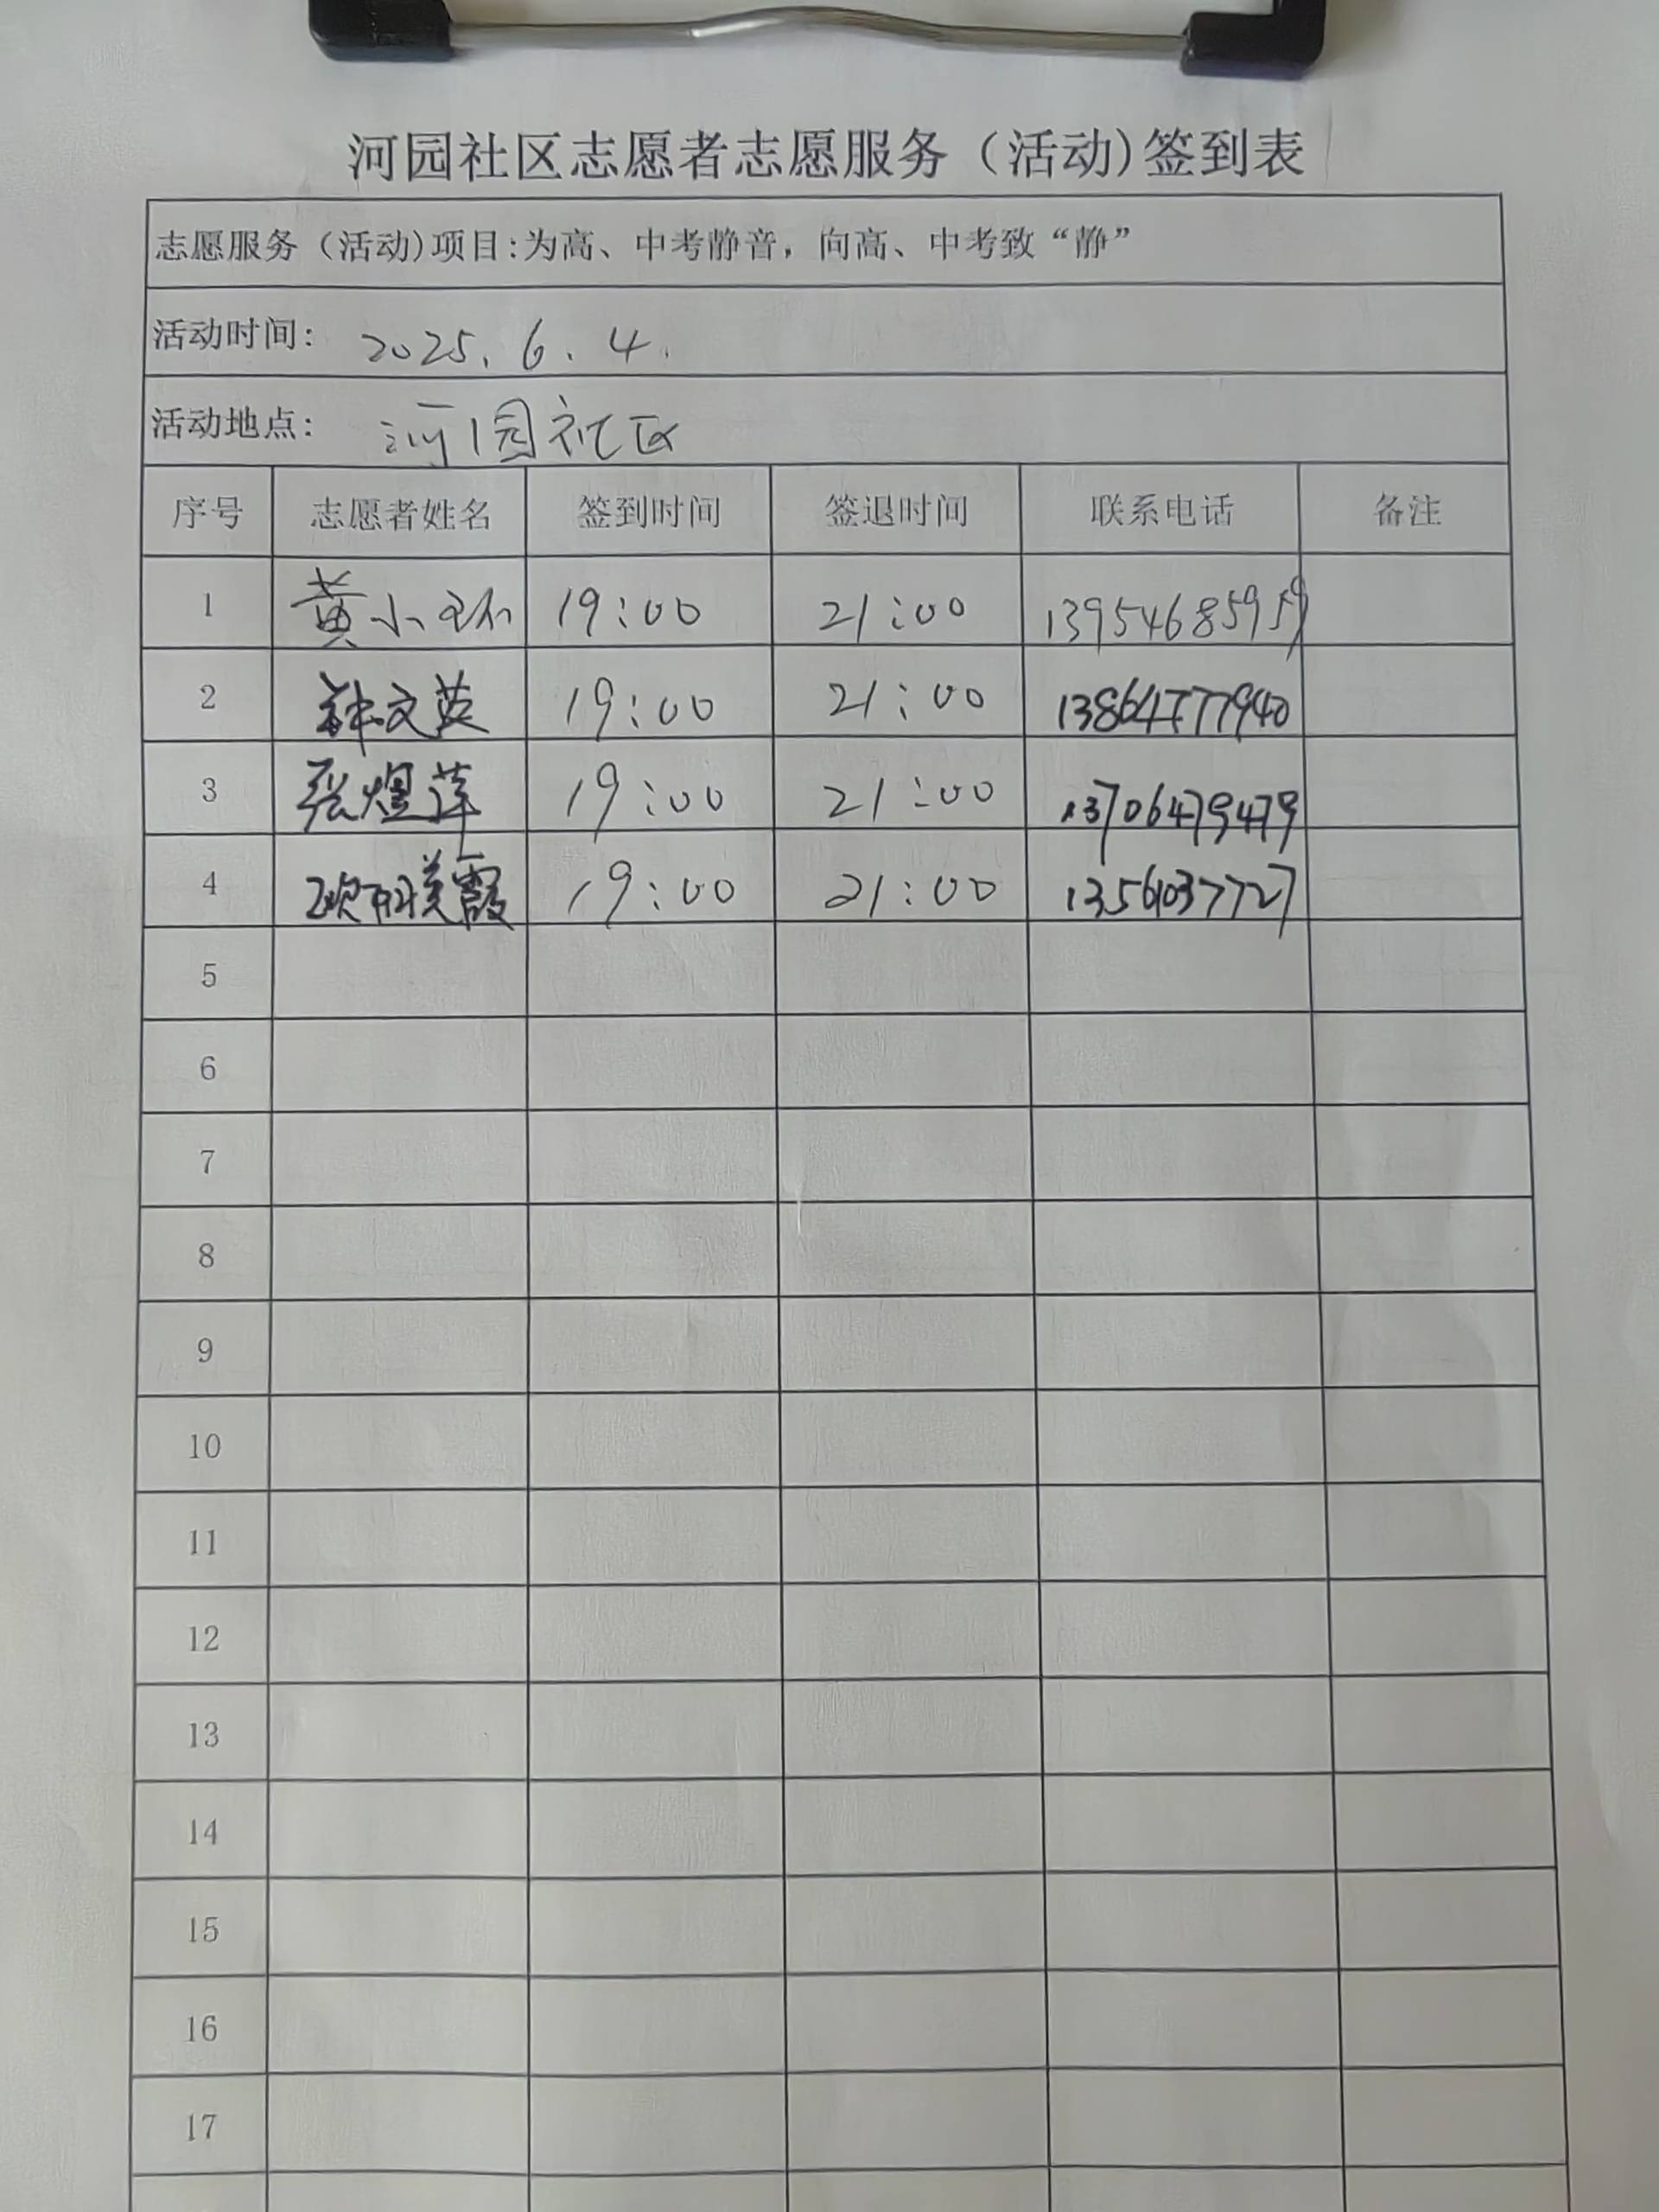 河园社区志愿者志愿服务（活动)签到表
志愿服务（活动)项目:为高、中考静音，向高、中考致“静”
活动时间: 2025.6.4.
活动地点: 河园社区
序号 志愿者姓名 签到时间 签退时间 联系电话 备注
1 黄小环 19:00 21:00 13954685959
2 钟文英 19:00 21:00 13864777940
3 张煜莲 19:00 21:00 13706479479
4 欧阳美霞 19:00 21:00 13561037727
5
6
7
8
9
10
11
12
13
14
15
16
17